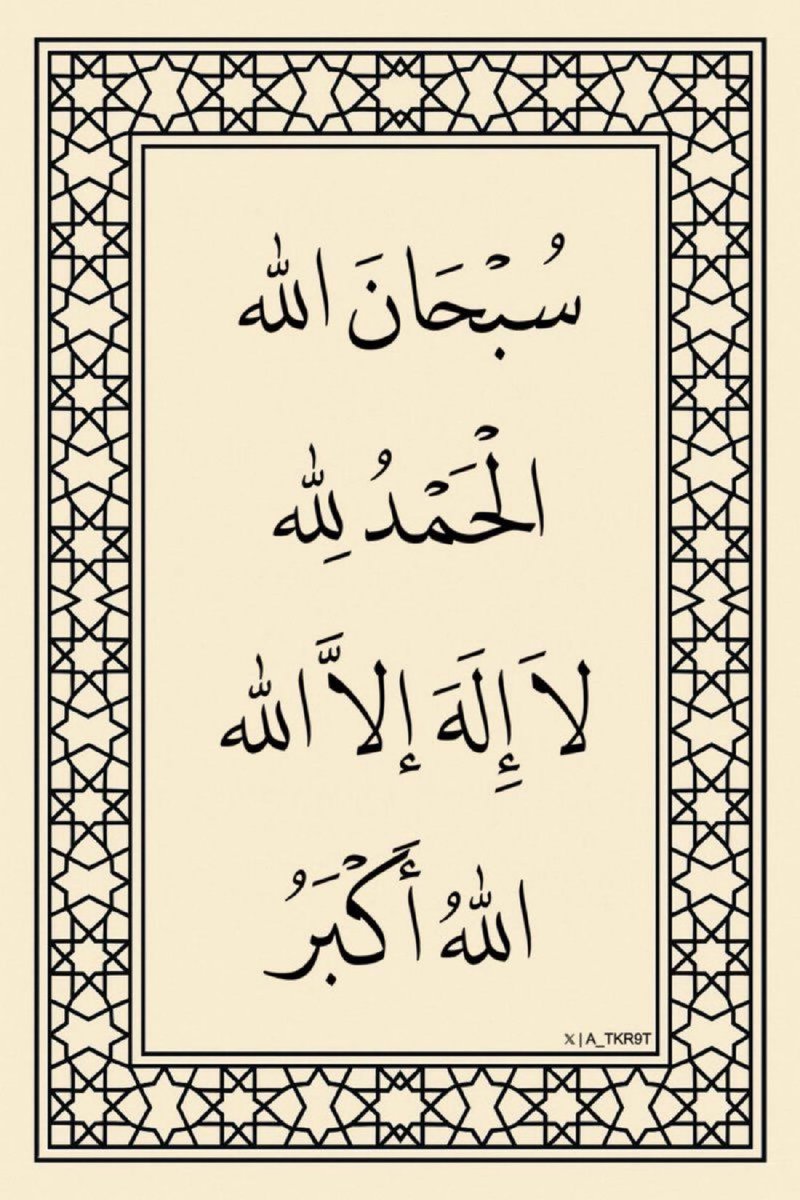 سُبْحَانَ الله
الْحَمْدُ لِلّٰه
لاَ إِلَهَ إلاَّ الله
اللهُ أَكْبَرُ
𝕏 | A_TKR9T